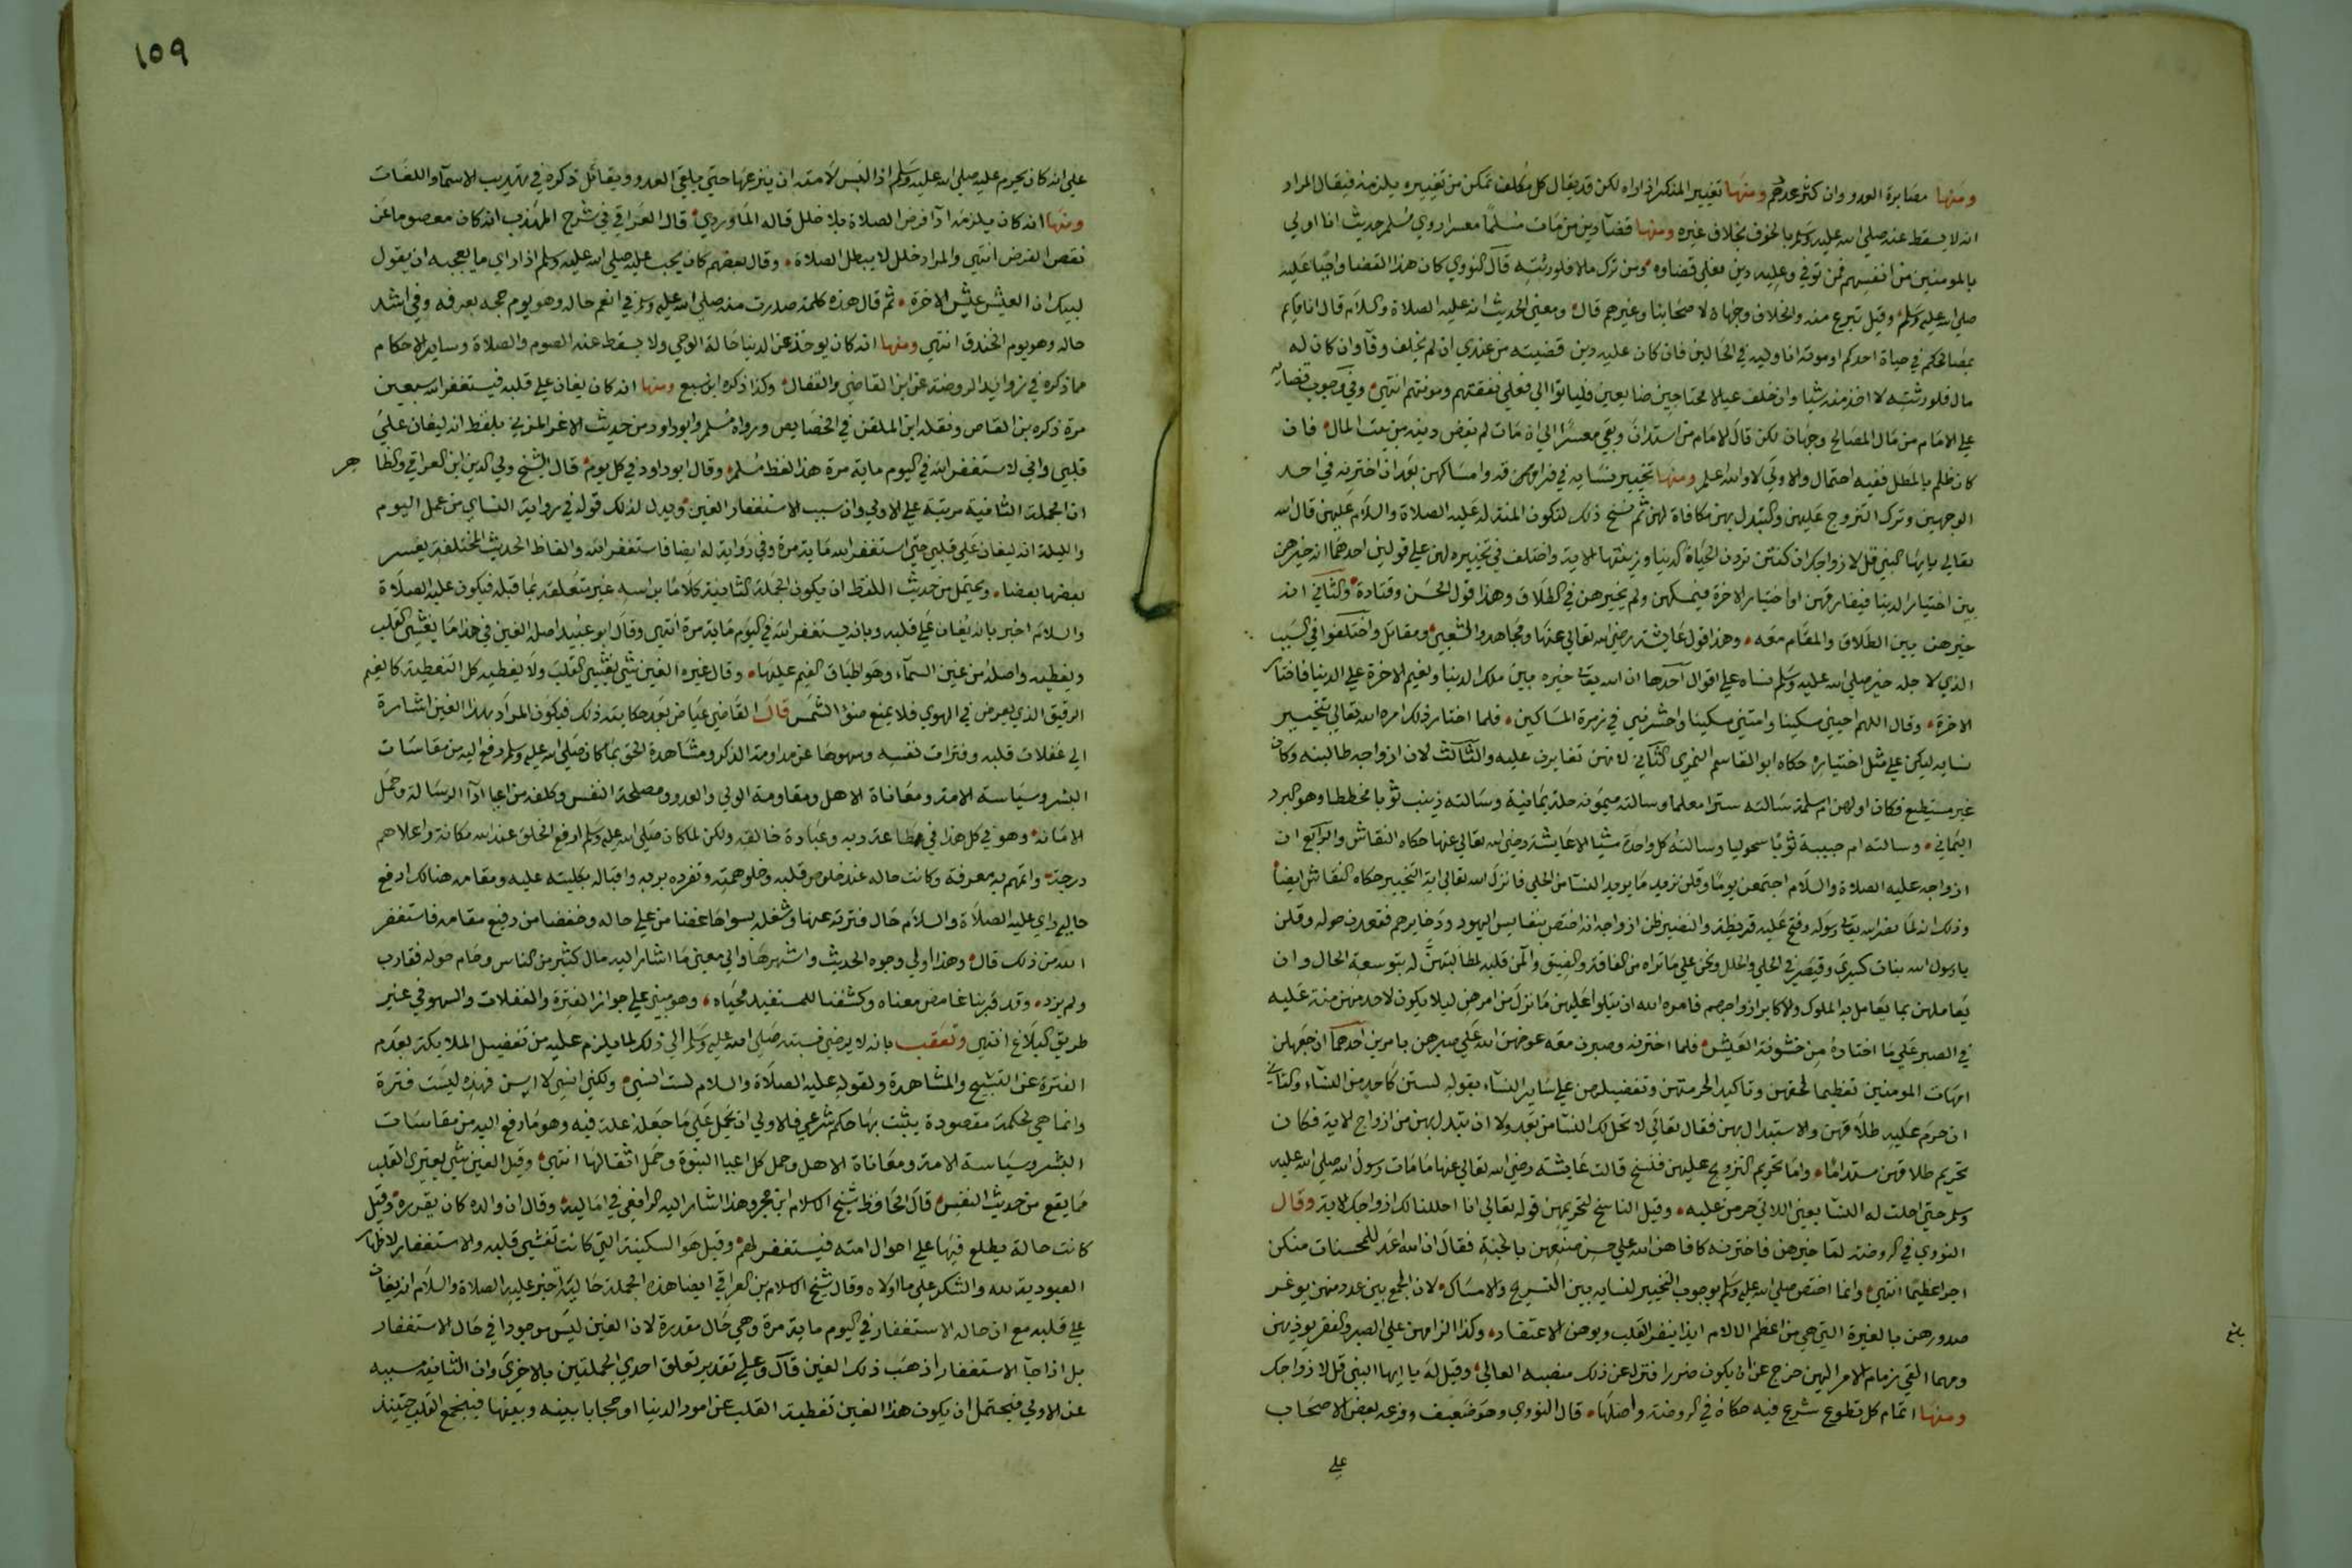 ومنها مصابرة العدو وان كثر عددهم ومنها تغيير المنكر اذا راه لكن قد يقال كل مكلف تمكن من تغييره يلزمه فيقال المراد
انه لا يسقط عنه صلي الله عليه وسلم بالخوف بخلاف غيره ومنها قضآ دين من مات مسلمًا معسرا روي مسلم حديث انا اولي
بالمومنين من انفسهم فمن توفي وعليه دين فعلي قضاوه ومن ترك مالا فلورثته قال النووي كان هذا القضا واجبًا عليه
صلي الله عليه وسلم وقيل تبرع منه والخلاف وجهان لاصحابنا وغيرهم قال ومعني الحديث انه عليه الصلاة والسلام قال انا قايم
بمصالحكم في حياة احدكم او موته انا وليه في الحالين فان كان عليه دين قضيته من عندي ان لم يخلف وفآ وان كان له
مال فلورثته لا اخذ منه شيا وان خلف عيالا محتاجين ضايعين فلياتوا الي فعلي نفقتهم ومونتهم انتهي وفي وجوب قضايه
علي الامام من مال المصالح وجهان لكن قال الامام من استدان وبقي معسرًا الي ان مات لم يقض دينه من بيت المال فان
كان ظلم بالمطل ففيه احتمال والاولي لا والله اعلم ومنها تخيير نسايه في فراقهن وامساكهن بعد ان اخترنه في احد
الوجهين وترك التزوج عليهن والتبدل بهن مكافاة لهن ثم نسخ ذلك لتكون المنة له عليه الصلاة والسلام عليهن قال الله
تعالي يا ايها النبي قل لازواجك ان كنتن تردن الحياة الدنيا وزينتها الاية واختلف في تخييره لهن علي قولين احدهما انه خيرهن
بين اختيار الدنيا فيفارقهن او اختيار الاخرة فيمسكهن ولم يخيرهن في الطلاق وهذا قول الحسن وقتادة والثاني انه
خيرهن بين الطلاق والمقام معه وهذا قول عايشة رضي الله تعالي عنها ومجاهد والشعبي ومقاتل واختلفوا في السبب
الذي لاجله خير صلي الله عليه وسلم نساه علي اقوال احدها ان الله تعالي خيره بين ملك الدنيا ونعيم الاخرة علي الدنيا فاختار
الاخرة وقال اللهم احيني مسكينا وامتني مسكينا واحشرني في زمرة المساكين فلما اختار ذلك امره الله تعالي بتخيير
نسايه ليكن علي مثل اختياره حكاه ابو القاسم النمري الثاني لانهن تغايرن عليه والثالث لان ازواجه طالبنه وكان
غير مستطيع فكان اولهن ام سلمة سالته سترا معلما وسالته ميمونه حلة يمانية وسالته زينب ثوبا مخططا وهو البرد
اليماني وسالته ام حبيبة ثوبًا سحوليا وسالته كل واحدة شيا الا عايشة رضي الله تعالي عنها حكاه النقاش والرابع ان
ازواجه عليه الصلاة والسلام اجتمعن يومًا وقلن نريد ما يريد النسآ من الحلي فانزل الله تعالي اية التخيير حكاه النقاش ايضا
وذلك انه لما نصر الله تعالي رسوله وفتح عليه قريظة والنضير ظن ازواجه انه اختص بنفايس اليهود وذخايرهم فقعدن حوله وقلن
يا رسول الله بنات كسري وقيصر في الحلي والحلل ونحن علي ما تراه من الفاقة والضيق وآلمن قلبه لمطالبتهن له بتوسعة الحال وان
يعاملهن بما يعامل به الملوك والاكابر ازواجهم فامره الله ان يتلوا عليهن ما نزل من امرهن ليلا يكون لاحد منهن منة عليه
في الصبر علي ما اختاره من خشونة العيش فلما اخترنه وصبرن معه عوضهن الله علي صبرهن بامرين احدهما ان جعلهن
امهات المومنين تعظيما لحقهن وتاكيدا لحرمتهن وتفضيلهن علي ساير النسآء بقوله لستن كاحد من النسآء والثاني
ان حرم عليه طلاقهن والاستبدال بهن فقال تعالي لا تحل لك النسآ من بعد ولا ان تبدل بهن من ازواج الاية فكان
تحريم طلاقهن مستدامًا واما تحريم التزويج عليهن فنسخ قالت عايشة رضي الله تعالي عنها ما مات رسول الله صلي الله عليه
وسلم حتي احلت له النسآ يعني اللاتي حرمن عليه وقيل الناسخ لتحريمهن قوله تعالي انا احللنا لك ازواجك الاية وقال
النووي في الروضة لما خيرهن فاخترنه كافاهن الله علي حسن صنيعهن بالجنة فقال ان الله اعد للمحسنات منكن
اجرا عظيمًا انتهي وانما اختص صلي الله عليه وسلم بوجوب التخيير لنسايه بين التسريح والامساك لان الجمع بين عدد منهن يوغر
صدورهن بالغيرة التي هي من اعظم الالام ايذا ينفر القلب ويوهن الاعتقاد وكذا الزامهن علي الصبر والفقر يوذيهن
ومهما القي زمام الامر اليهن خرج عن ان يكون ضررا فنزه عن ذلك منصبه العالي وقيل له يا ايها النبي قل لازواجك
ومنها اتمام كل تطوع شرع فيه حكاه في الروضة واصلها قال النووي وهو ضعيف وفرعه بعض الاصحاب
علي
بلغ
١٥٩
علي انه كان يحرم عليه صلي الله عليه وسلم اذا لبس لامته ان ينزعها حتي يلقي العدو ويقاتل ذكره في تهذيب الاسمآ واللغات
ومنها انه كان يلزمه ادآ فرض الصلاة بلا خلل قاله الماوردي قال العراقي في شرح المهذب انه كان معصوما عن
نقص الفرض انتهي والمراد خلل لا يبطل الصلاة وقال بعضهم كان يجب عليه صلي الله عليه وسلم اذا راي ما يعجبه ان يقول
لبيك ان العيش عيش الاخرة ثم قال هذه كلمة صدرت منه صلي الله عليه وسلم في انعم حاله وهو يوم حجه بعرفه وفي اشد
حاله وهو يوم الخندق انتهي ومنها انه كان يوخذ عن الدنيا حالة الوحي ولا يسقط عنه الصوم والصلاة وساير الاحكام
مما ذكره في زوايد الروضة عن ابن القاضي والقفال وكذا ذكره ابن سبع ومنها انه كان يغان علي قلبه فيستغفر الله سبعين
مرة ذكره بن القاص ونقله ابن الملقن في الخصايص ورواه مسلم وابو داود من حديث الاغر المزني بلفظ انه ليغان علي
قلبي واني لاستغفر الله في اليوم ماية مرة هذا لفظ مسلم وقال ابو داود في كل يوم قال الشيخ ولي الدين ابن العراقي والظاهر
ان الجملة الثانية مرتبة علي الاولي وان سبب الاستغفار الغين ويدل لذلك قوله في رواية النساي من عمل اليوم
والليلة انه ليغان علي قلبي حتي استغفر الله ماية مرة وفي رواية له ايضا فاستغفر الله والفاظ الحديث المختلفة يفسر
بعضها بعضا ويحتمل من حديث اللفظ ان يكون الجملة الثانية كلاما براسه غير متعلقه بما قبله فيكون عليه الصلاة
والسلام اخبر بانه يغان علي قلبه وبانه يستغفر الله في اليوم ماية مرة انتهي وقال ابو عبيد اصل الغين في هذا ما يغشي القلب
ويغطيه واصله من غين السمآء وهو اطباق الغيم عليها وقال غيره الغين شي يغشي القلب ولا يغطيه كل التغطية كالغيم
الرقيق الذي يعرض في الهوي فلا يمنع ضوء الشمس قال القاضي عياض بعد حكايته ذلك فيكون المراد بهذا الغين اشارة
الي غفلات قلبه وفترات نفسه وسهوها عن مداومة الذكر ومشاهدة الحق بما كان صلي الله عليه وسلم دفع اليه من مقاسات
البشر وسياسة الامة ومعاناة الاهل ومقاومة الولي والعدو ومصلحة النفس وكلفه من اعبا ادآ الرسالة وحمل
الامانة وهو في كل هذا في طاعة ربه وعبادة خالقه ولكن لما كان صلي الله عليه وسلم ارفع الخلق عند الله مكانة واعلاهم
درجة واتمهم به معرفة وكانت حاله عند خلوص قلبه وخلو همته وتفرده بربه واقباله بكليته عليه ومقامه هنالك ارفع
حاليه راي عليه الصلاة والسلام حال فترته عنها وشغله بسواها غضا من علي حاله وخفضا من رفيع مقامه فاستغفر
الله من ذلك قال وهذا اولي وجوه الحديث واشهرها والي معني ما اشار اليه مال كثير من الناس وحام حوله فقارب
ولم يرد وقد قربنا غامض معناه وكشفنا للمستفيد محياه وهو مبني علي جواز الفترة والغفلات والسهو في غير
طريق البلاغ انتهي وتعقب بانه لا يرضي نسبته صلي الله عليه وسلم الي ذلك لما يلزم عليه من تفضيل الملايكة بعدم
الفترة عن التسبيح والمشاهدة ولقوله عليه الصلاة والسلام لست انسي ولكني انسي لاسن فهذه ليست فترة
وانما هي لحكمة مقصودة يثبت بها حكم شرعي فالاولي ان يحمل علي ما جعله علة فيه وهو ما دفع اليه من مقاسات
البشر وسياسة الامة ومعاناة الاهل وحمل كل اعبا النبوة وحمل اثقالها انتهي وقيل الغين شي يعتري القلب
مما يقع من حديث النفس قال الحافظ شيخ الاسلام ابن حجر وهذا اشار اليه الرافعي في اماليه وقال ان والده كان يقرره وقيل
كانت حالة يطلع فيها علي احوال امته فيستغفر لهم وقيل هو السكينة التي كانت تغشي قلبه والاستغفار لاظهار
العبودية لله والشكر علي ما اولاه وقال شيخ الاسلام بن العراقي ايضا هذه الجملة حالية اخبر عليه الصلاة والسلام انه يغان
علي قلبه مع ان حاله الاستغفار في اليوم ماية مرة وهي حال مقدرة لان الغين ليس موجودا في حال الاستغفار
بل اذا جآ الاستغفار اذهب ذلك الغين قال وعلي تقدير تعلق احدي الجملتين بالاخري وان الثانية مسببه
عن الاولي فيحتمل ان يكون هذا الغين تغطية القلب عن امور الدنيا او حجابا بينه وبينها فيجتمع القلب حينيذ